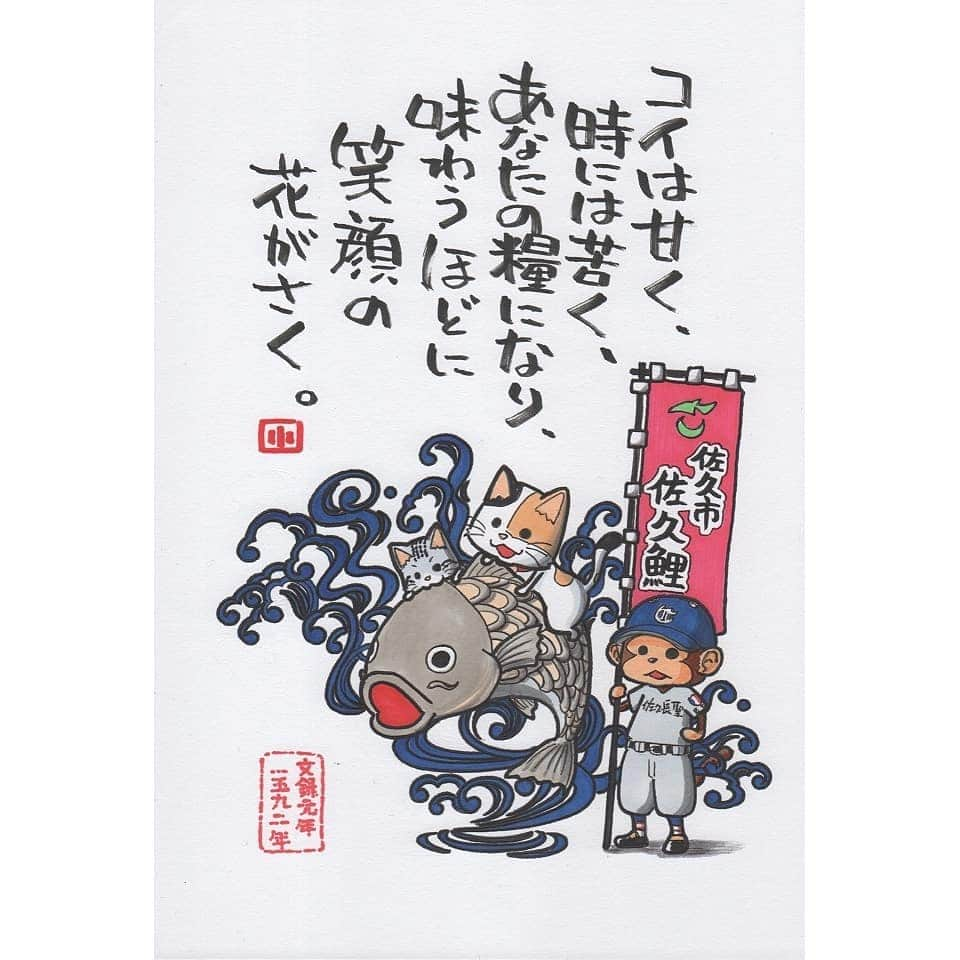 コイは甘く、
時には苦く、
あなたの糧になり、
味わうほどに
笑顔の
花がさく。
小
佐久市
佐久鯉
佐久長聖
文録元年
一五九二年